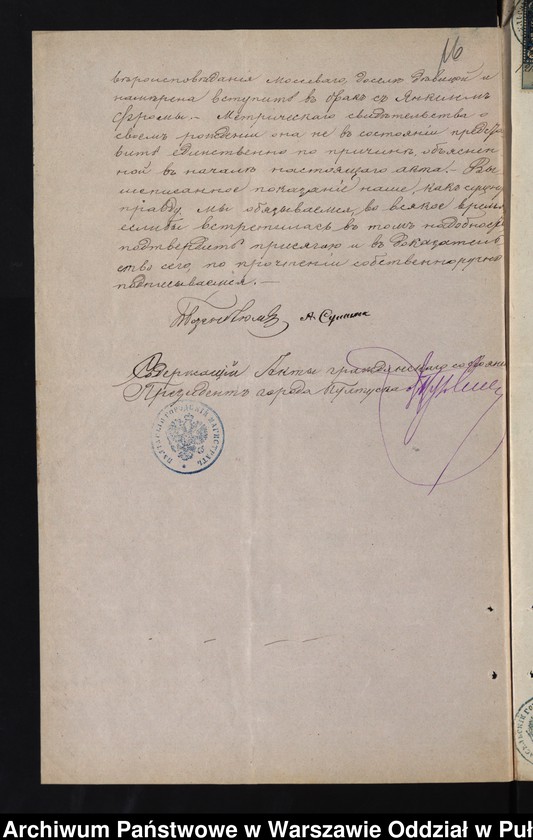 16
вѣроисповѣданія Моисеваго, доселѣ дѣвицей и
намѣрена вступить въ бракъ съ Янкелемъ
Метрическаго свидѣтельства о
своемъ рожденіи она не въ состояніи предста
вить единственно по причинѣ, объяснен
ной въ началѣ настоящаго акта. — Вы
шеписанное показаніе наше, какъ сущую
правду, мы обязываемся, во всякое время,
еслибы встретилась въ томъ надобность
подтвердить присягаю и въ доказатель
ство сего, по прочтеніи собственноручно
подписываемся. —
Содержащій Акты гражданскаго состоянія
Президентъ города Пултуска
ПУЛТУСКІЙ ГОРОДСКІЙ МАГИСТРАТЪ
Archiwum Państwowe w Warszawie Oddział w Puł